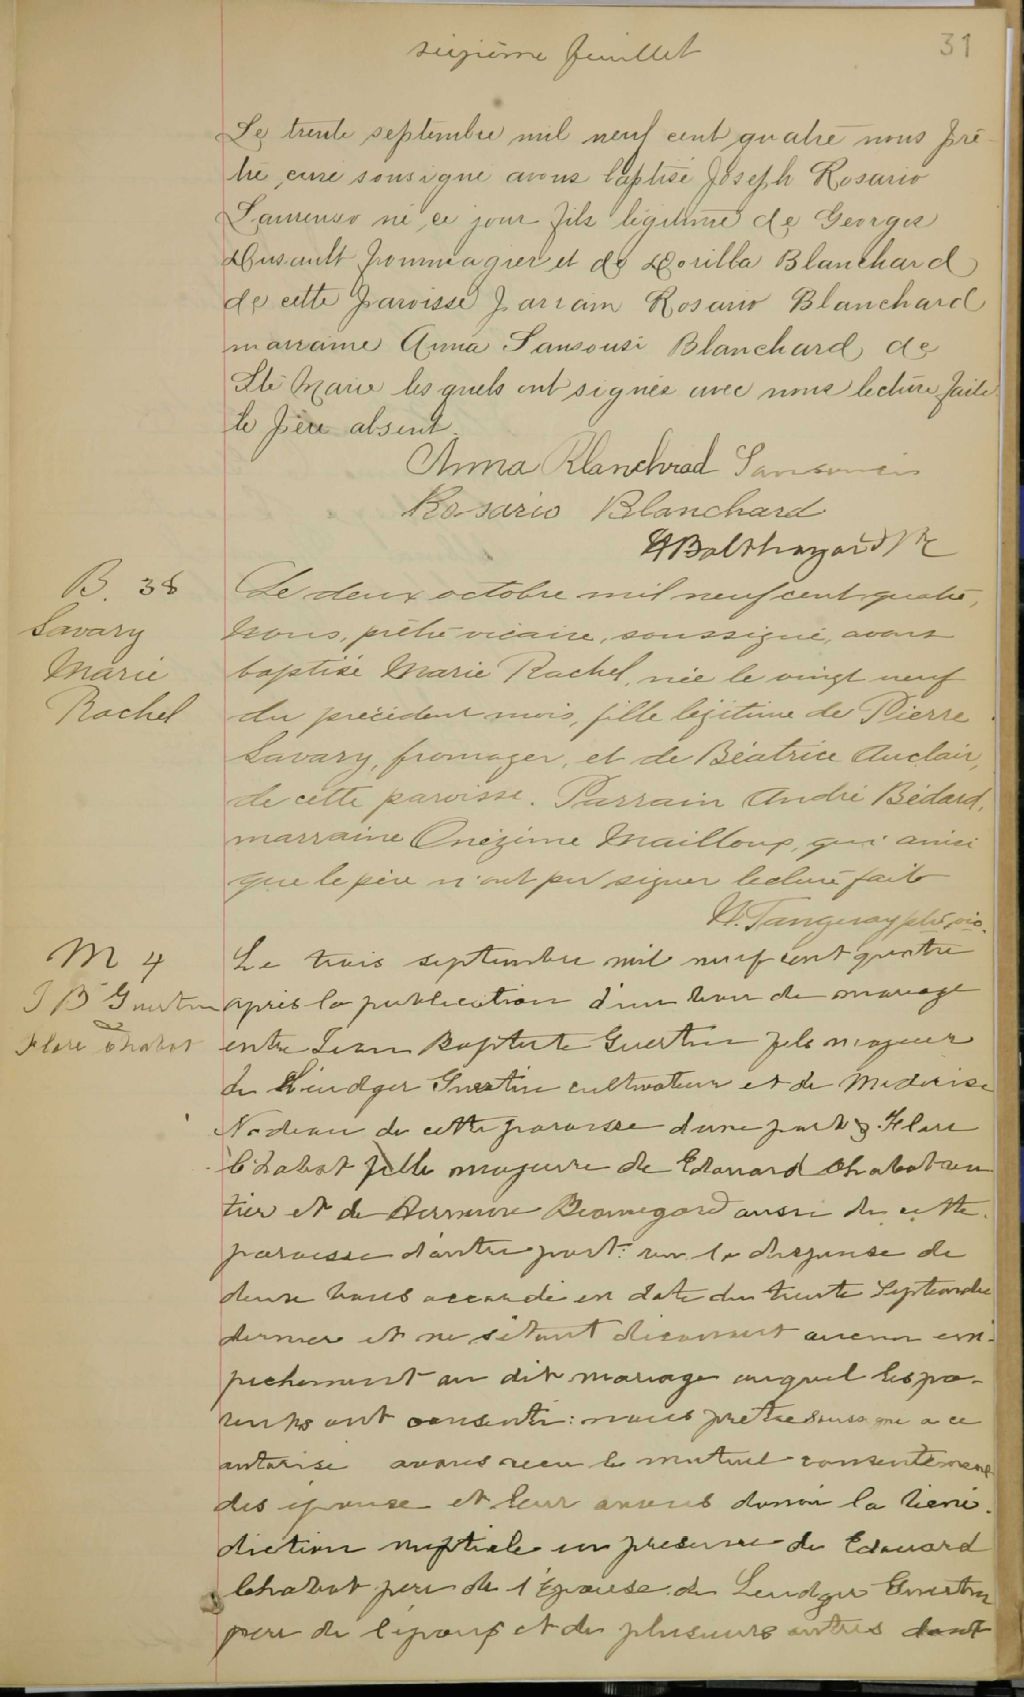 sizième feuillet
31
Le trente septembre mil neuf cent quatre nous prê-
tre curé sousigné avons baptisé Joseph Rosario
Laurenso né ce jour fils légitime de Georges
Dusault frommagier et de Dorilla Blanchard
de cette paroisse parrain Rosario Blanchard
marraine Anna Sansousi Blanchard de
Ste Marie les quels ont signés avec nous lecture faite
le père absent.
Anna Blanchrad Sansoucis
Rosario Blanchard
Balthazard Ptr
B. 38
Savary
Marie
Rachel
Le deux octobre mil neuf cent quatre,
Nous, prêtre vicaire, soussigné, avons
baptisé Marie Rachel, née le vingt neuf
du précédent mois, fille légitime de Pierre
Savary, fromager, et de Béatrice Auclair,
de cette paroisse. Parrain André Bédard,
marraine Onézime Mailloux, qui ainsi
que le père n'ont pu signer lecture faite
H. Tanguay ptre, vic.
M 4
J B Guertin
Flore Chabot
Le trois septembre mil neuf cent quatre
après la publication d'un ban de mariage
entre Jean Baptiste Guertin fils majeur
de Leudger Guertin cultivateur et de Mederise
Nadeau de cette paroisse d'une part & Flore
Chabot fille majeure de Edouard Chabot ren
tier et de Beauregard aussi de cette
paroisse d'autre part: vu la dispense de
deux bans accordé en date du trente Septembre
dernier et ne s'étant découvert aucun em-
pechement au dit mariage auquel les pa-
rents ont consenti: nous prêtre soussigné a ce
autorisé avons recu le mutuel consentement
des épouse et leur avons donné la béné-
diction nuptiale en presence de Edouard
Chabot pere de l'épouse de Leudger Guertin
pere de l'époux et de plusieurs autres dont